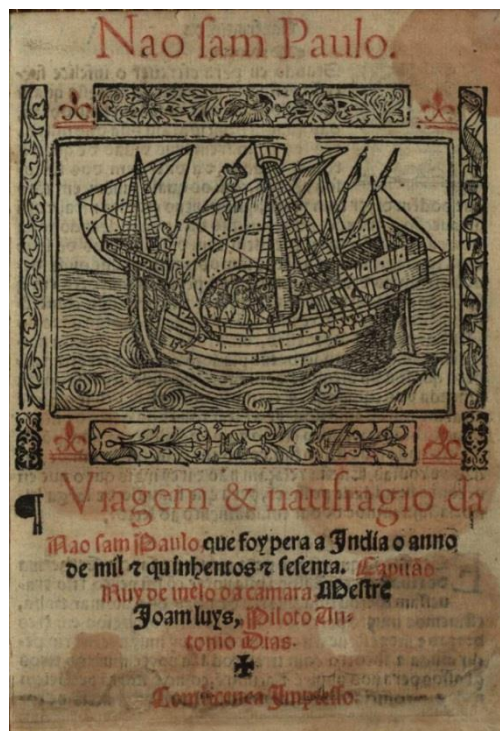 Nao sam Paulo.
¶ Viagem & naufragio da
Nao sam Paulo que foy pera a India o anno
de mil ⁊ quinhentos ⁊ sesenta. Capitão
Ruy de melo da camara Mestre
Joam luys, Piloto An-
tonio Dias.
Com licença Impresso.